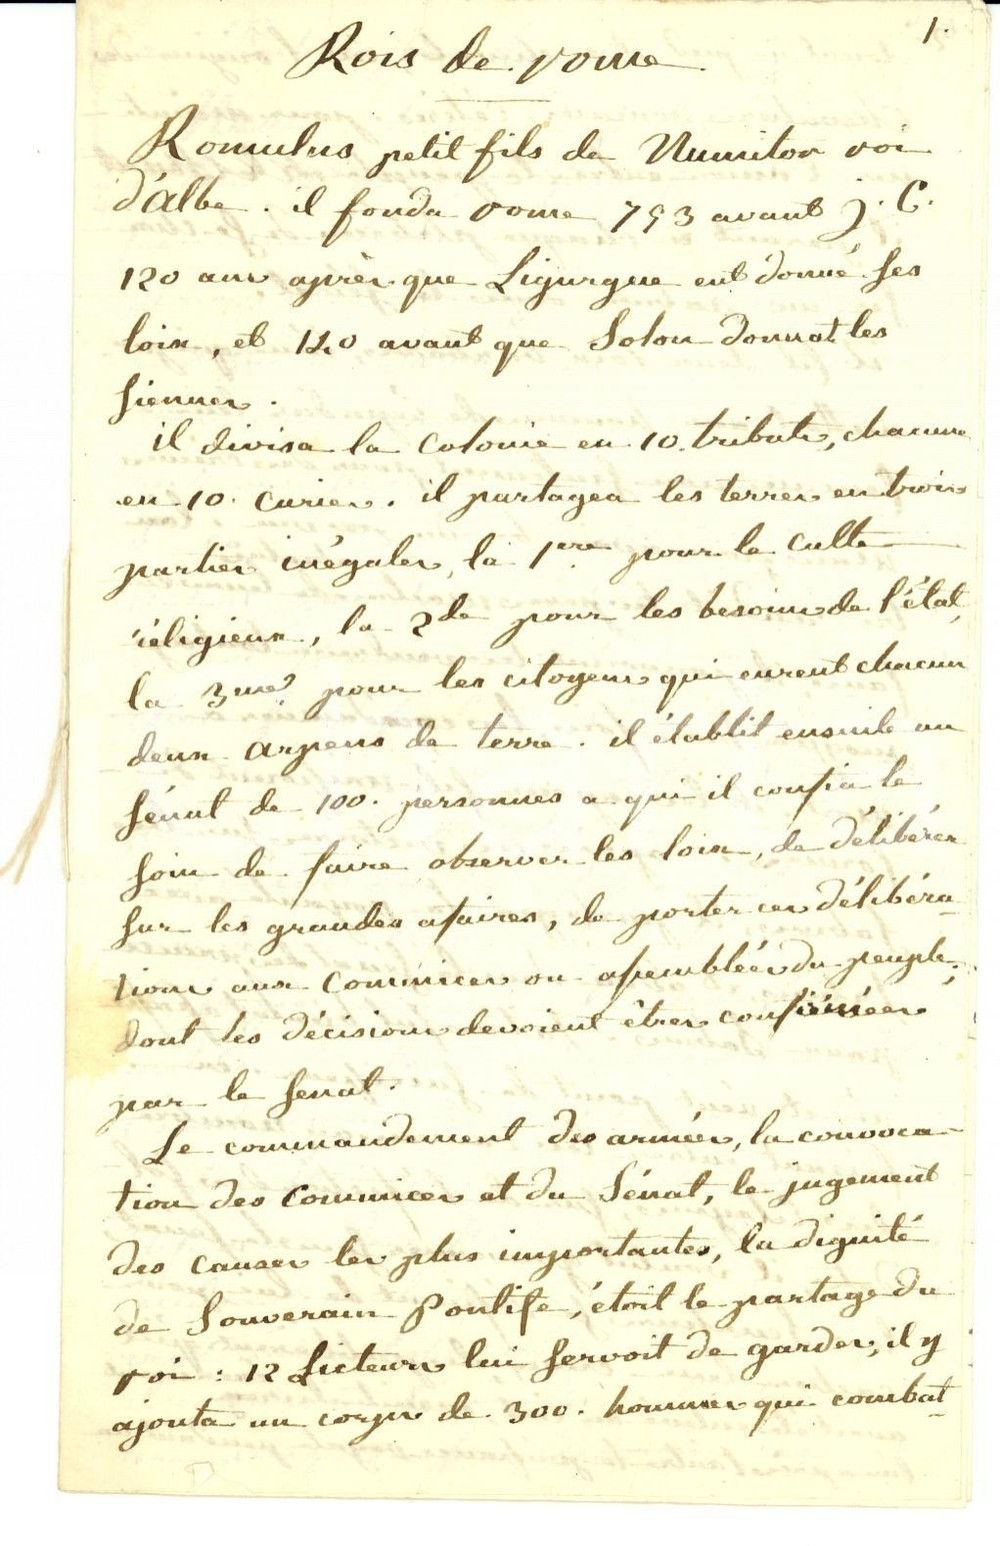 1.
Rois de rome
Romulus petit fils de Numitor roi
d'albe. il fonda rome 753 avant j. C.
120 ans après que Ligurgue eut donné ses
loix, et 140 avant que Solon donnat les
siennes.
il divisa la colonie en 10. tributs, chacune
en 10. curies. il partagea les terres en trois
parties inégales, la 1ere pour le culte
réligieux, la 2de pour les besoins de l'état,
la 3me pour les citoyens qui eurent chacun
deux arpens de terre. il établit ensuite un
sénat de 100. personnes a qui il confia le
soin de faire observer les loix, de délibérer
sur les grandes afaires, de porter ces délibéra-
tions aux Commices ou assemblées du peuple,
dont les décisions devoient êtres
par le senat.
Le commandement des armées, la convoca-
tion des Commices et du Sénat, le jugement
des causes les plus importantes, la dignité
de Souverain Pontife, étoit le partage du
roi: 12 Licteurs lui servoit de gardes, il y
ajouta un corps de 300. hommes qui combat-